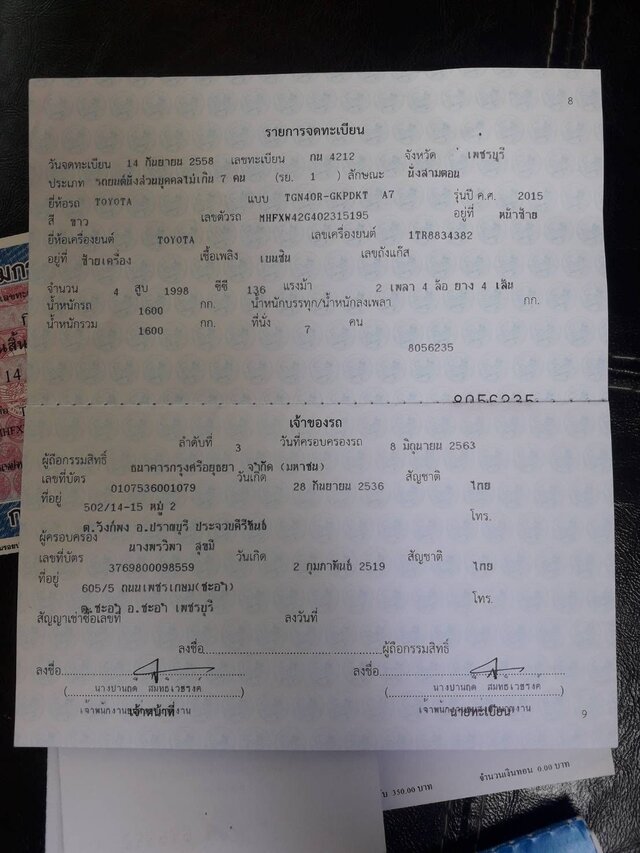 8
รายการจดทะเบียน
วันจดทะเบียน 14 กันยายน 2558 เลขทะเบียน กน 4212 จังหวัด เพชรบุรี
ประเภท รถยนต์นั่งส่วนบุคคลไม่เกิน 7 คน (รย. 1 ) ลักษณะ นั่งสามตอน
ยี่ห้อรถ TOYOTA แบบ TGN40R-GKPDKT A7 รุ่นปี ค.ศ. 2015
สี ขาว เลขตัวรถ MHFXW42G402315195 อยู่ที่ หน้าซ้าย
ยี่ห้อเครื่องยนต์ TOYOTA เลขเครื่องยนต์ 1TR8834382
อยู่ที่ ซ้ายเครื่อง เชื้อเพลิง เบนซิน เลขถังแก๊ส
จำนวน 4 สูบ 1998 ซีซี 136 แรงม้า 2 เพลา 4 ล้อ ยาง 4 เส้น
น้ำหนักรถ 1600 กก. น้ำหนักบรรทุก/น้ำหนักลงเพลา กก.
น้ำหนักรวม 1600 กก. ที่นั่ง 7 คน
8056235
8056235
เจ้าของรถ
ลำดับที่ 3 วันที่ครอบครองรถ 8 มิถุนายน 2563
ผู้ถือกรรมสิทธิ์ ธนาคารกรุงศรีอยุธยา จำกัด (มหาชน)
เลขที่บัตร 0107536001079 วันเกิด 28 กันยายน 2536 สัญชาติ ไทย
ที่อยู่ 502/14-15 หมู่ 2 โทร.
ต.วังก์พง อ.ปราณบุรี ประจวบคีรีขันธ์
ผู้ครอบครอง นางพรวิพา สุขมี
เลขที่บัตร 3769800098559 วันเกิด 2 กุมภาพันธ์ 2519 สัญชาติ ไทย
ที่อยู่ 605/5 ถนนเพชรเกษม(ชะอำ) โทร.
ต.ชะอำ อ.ชะอำ เพชรบุรี
สัญญาเช่าซื้อเลขที่ ลงวันที่
ลงชื่อ ผู้ถือกรรมสิทธิ์
ลงชื่อ ลงชื่อ
เจ้าหน้าที่ นายทะเบียน
9
350.00 บาท จำนวนเงินทอน 0.00 บาท